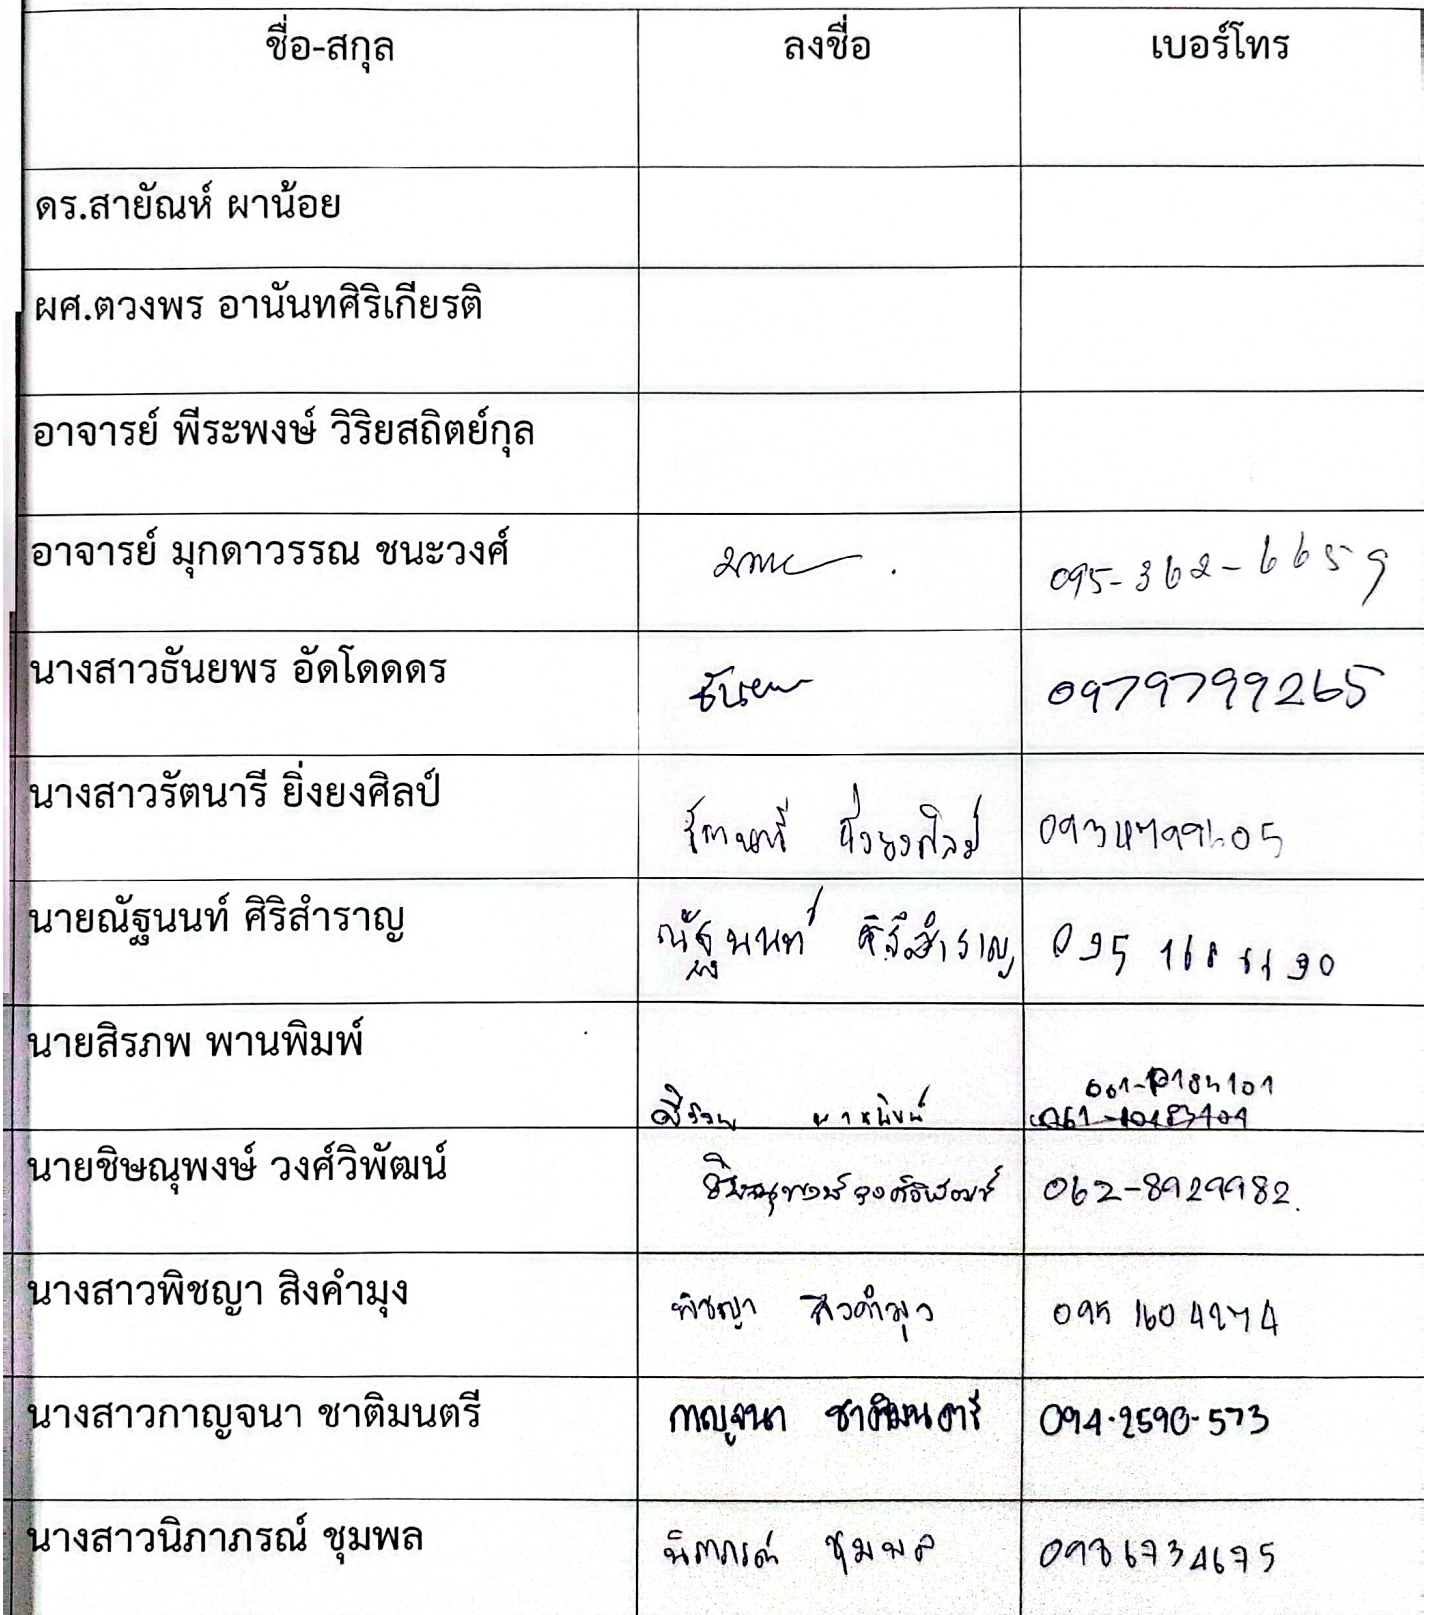 ชื่อ-สกุล ลงชื่อ เบอร์โทร
ดร.สายัณห์ ผาน้อย
ผศ.ตวงพร อานันทศิริเกียรติ
อาจารย์ พีระพงษ์ วิริยสถิตย์กุล
อาจารย์ มุกดาวรรณ ชนะวงศ์ 095-362-6659
นางสาวธันยพร อัดโดดดร ธันยพร 0979799265
นางสาวรัตนารี ยิ่งยงศิลป์ รัตนารี ยิ่งยงศิลป์
นายณัฐนนท์ ศิริสำราญ ณัฐนนท์ ศิริสำราญ
นายสิรภพ พานพิมพ์ สิรภพ พานพิมพ์
นายชิษณุพงษ์ วงศ์วิพัฒน์ ชิษณุพงษ์ วงศ์วิพัฒน์ 062-8929982.
นางสาวพิชญา สิงคำมุง พิชญา สิงคำมุง 095 1604274
นางสาวกาญจนา ชาติมนตรี กาญจนา ชาติมนตรี 094-2590-573
นางสาวนิภาภรณ์ ชุมพล นิภาภรณ์ ชุมพล 0936734675